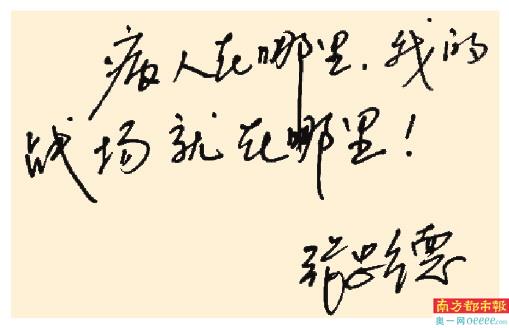 病人在哪里.我的
战场就在哪里!
张忠德
南方都市报
奥一网oeeee.com